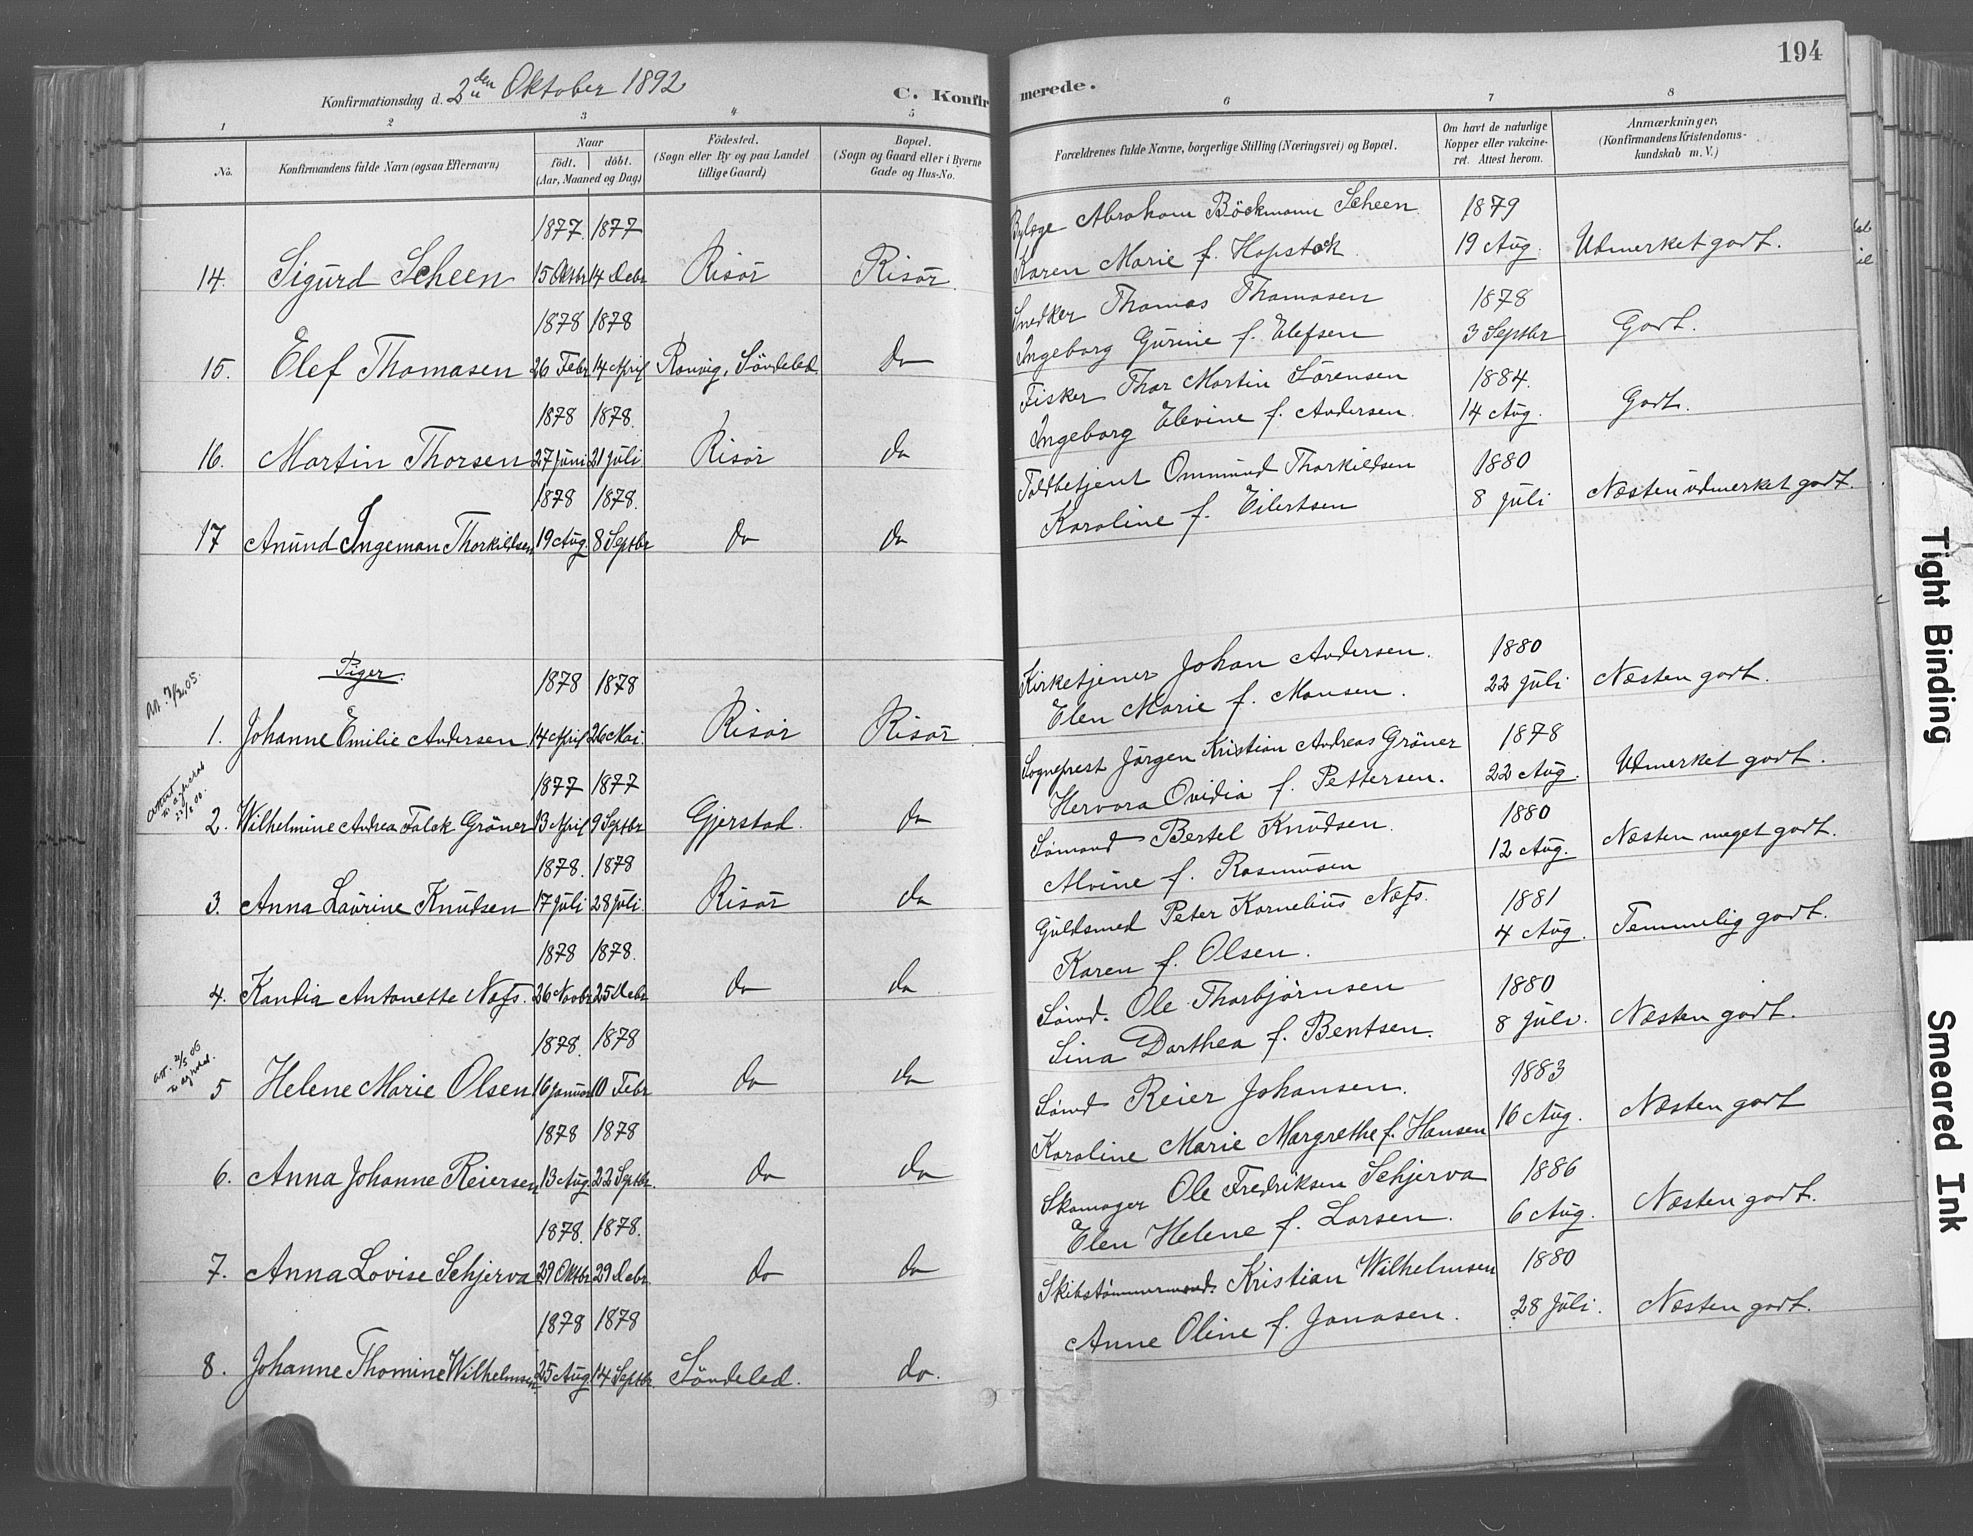 194
Konfirmationsdag d. 2den Oktober 1892
C. Konfirmerede.
1 2 3 4 5 6 7 8
No.
Konfirmandens fulde Navn (ogsaa Efternavn)
Naar
födt. döbt.
(Aar, Maaned og Dag)
Födested.
(Sogn eller By og paa Landet
tillige Gaard)
Bopæl.
(Sogn og Gaard eller i Byerne
Gade og Hus-No.
Forældrenes fulde Navne, borgerlige Stilling (Næringsvei) og Bopæl.
Om havt de naturlige
Kopper eller vakcine-
ret. Attest herom.
Anmærkninger.
(Konfirmandens Kristendoms-
kundskab m. V.)
1877. 1877 Abraham Böckmann Scheen 1879
14. Sigurd Scheen 15 Oktbr 14 Debr Risør Risør. Karen Marie f. Hopstock 19 Aug. Udmerket godt.
1878 1878 Snedker Thomas Thomasen 1878
15. Elef Thomasen 26 Febr 14 April Ranvig, Söndeled. do Ingeborg Gurine f. Elefsen 3 Septbr Godt.
1878 1878. Fisker Thor Martin Sörensen 1884.
16. Martin Thorsen 27 Juni 21 Juli Risör do Ingeborg Elevine f. Andersen. 14 Aug. Godt.
1878 1878. Toldbetjent Ommund Thorkildsen 1880
17 Anund Ingeman Thorkildsen 19 Aug 8 Septbr do do Karoline f. Eilertsen 8 Juli Næsten udmerket godt.
Piger.
1878 1878 Kirketjener Johan Andersen. 1880
1. Johanne Emilie Andersen 14 April 26 Mai. Risör Risör Elen Marie f. Monsen. 22 Juli Næsten godt.
1877 1877 Sogneprest Jörgen Kristian Andreas Gröner 1878
2. Wilhelmine Andrea Falck Gröner 13 April 9 Septbr Gjerstad. do Hervora Ovidia f. Pettersen. 22 Aug. Udmerket godt.
1878. 1878 Sömand Bertel Knudsen. 1880
3. Anna Laurine Knudsen 17 Juli 28 Juli. Risör do Alvine f. Rasmusen 12 Aug. Næsten meget godt.
1878 1878. Guldsmed Peter Kornelius Næss. 1881
4. Kandia Antonette Næss. 26 Novbr 25 Debr do do Karen f. Olsen. 4 Aug. Temmelig godt.
1878. 1878 Sömd. Ole Thorbjörnsen 1880
5 Helene Marie Olsen 16 Januar 10 Febr do do Lina Dorthea f. Bentsen. 8 Juli. Næsten godt.
1878 1878 Sömd Reier Johansen. 1883
6. Anna Johanne Reiersen 13 Aug 22 Septbr. do do Karoline Marie Margrethe f. Hansen 16 Aug. Næsten godt
1878. 1878. Skomager Ole Fredriksen Schjerva 1886
7. Anna Lovise Schjerva 29 Oktbr 29 Debr do do Elen Helene f. Larsen. 6 Aug. Næsten godt.
1878 1878 Skibstömmermand. Kristian Wilhelmsen 1880
8. Johanne Thomine Wilhelmsen 25 Aug 14 Septbr. Söndeled. do. Anne Oline f. Jonasen. 28 Juli. Næsten godt.
Tight Binding
Smeared Ink